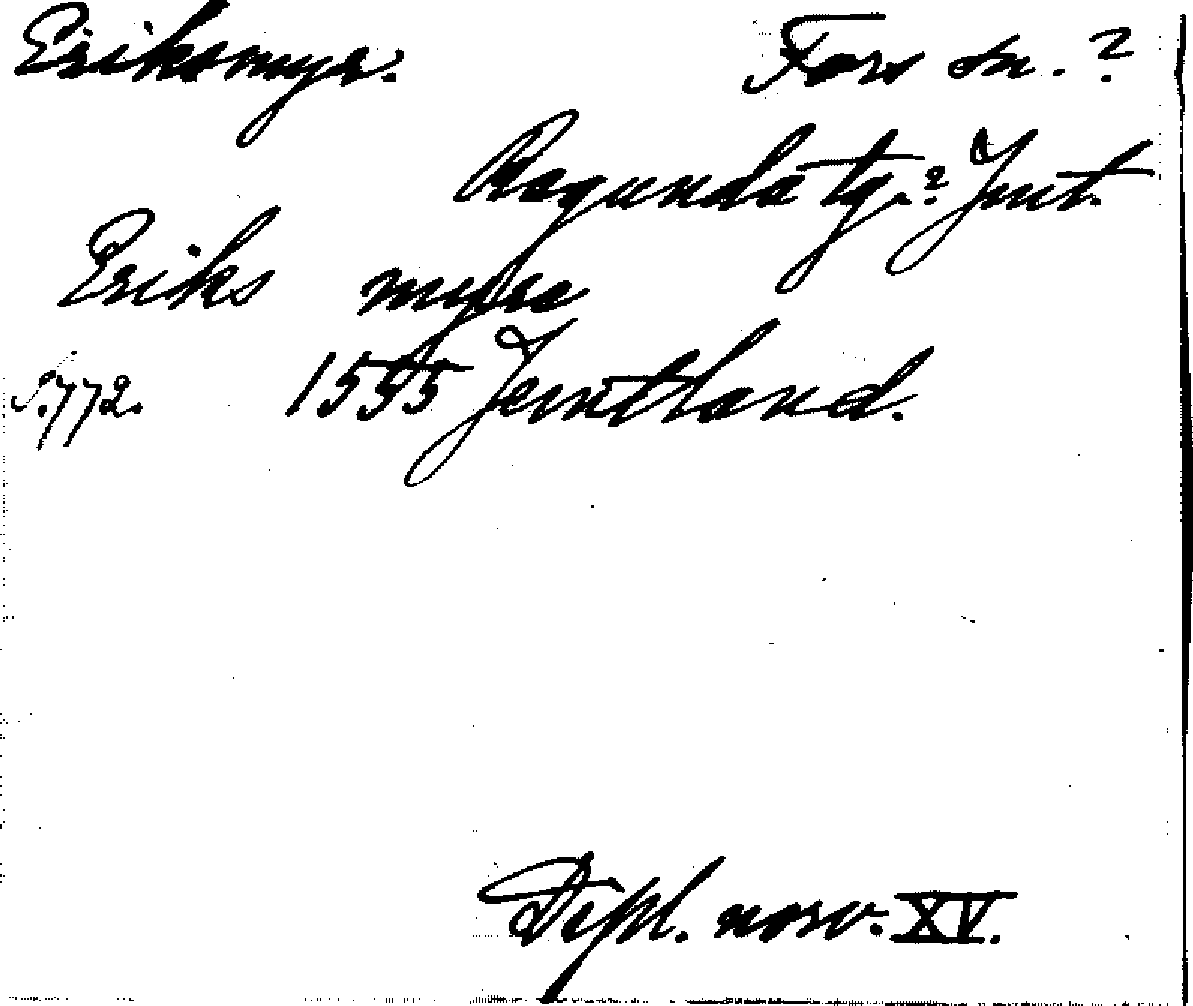 Eriksmyr. Fors sn. ?
Ragunda tg.? Jmt.
Eriks myre
S. 772. 1555 Jemtland.
Dipl. norv. XV.